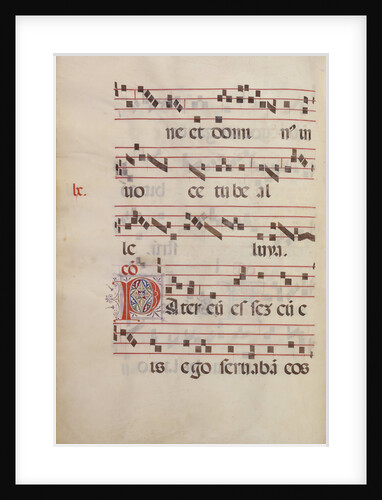 ne et domi nꝰ in
lx.
uo ce tube al
le luya.
cō
Pater cū essē cū e
is ego seruabā eos